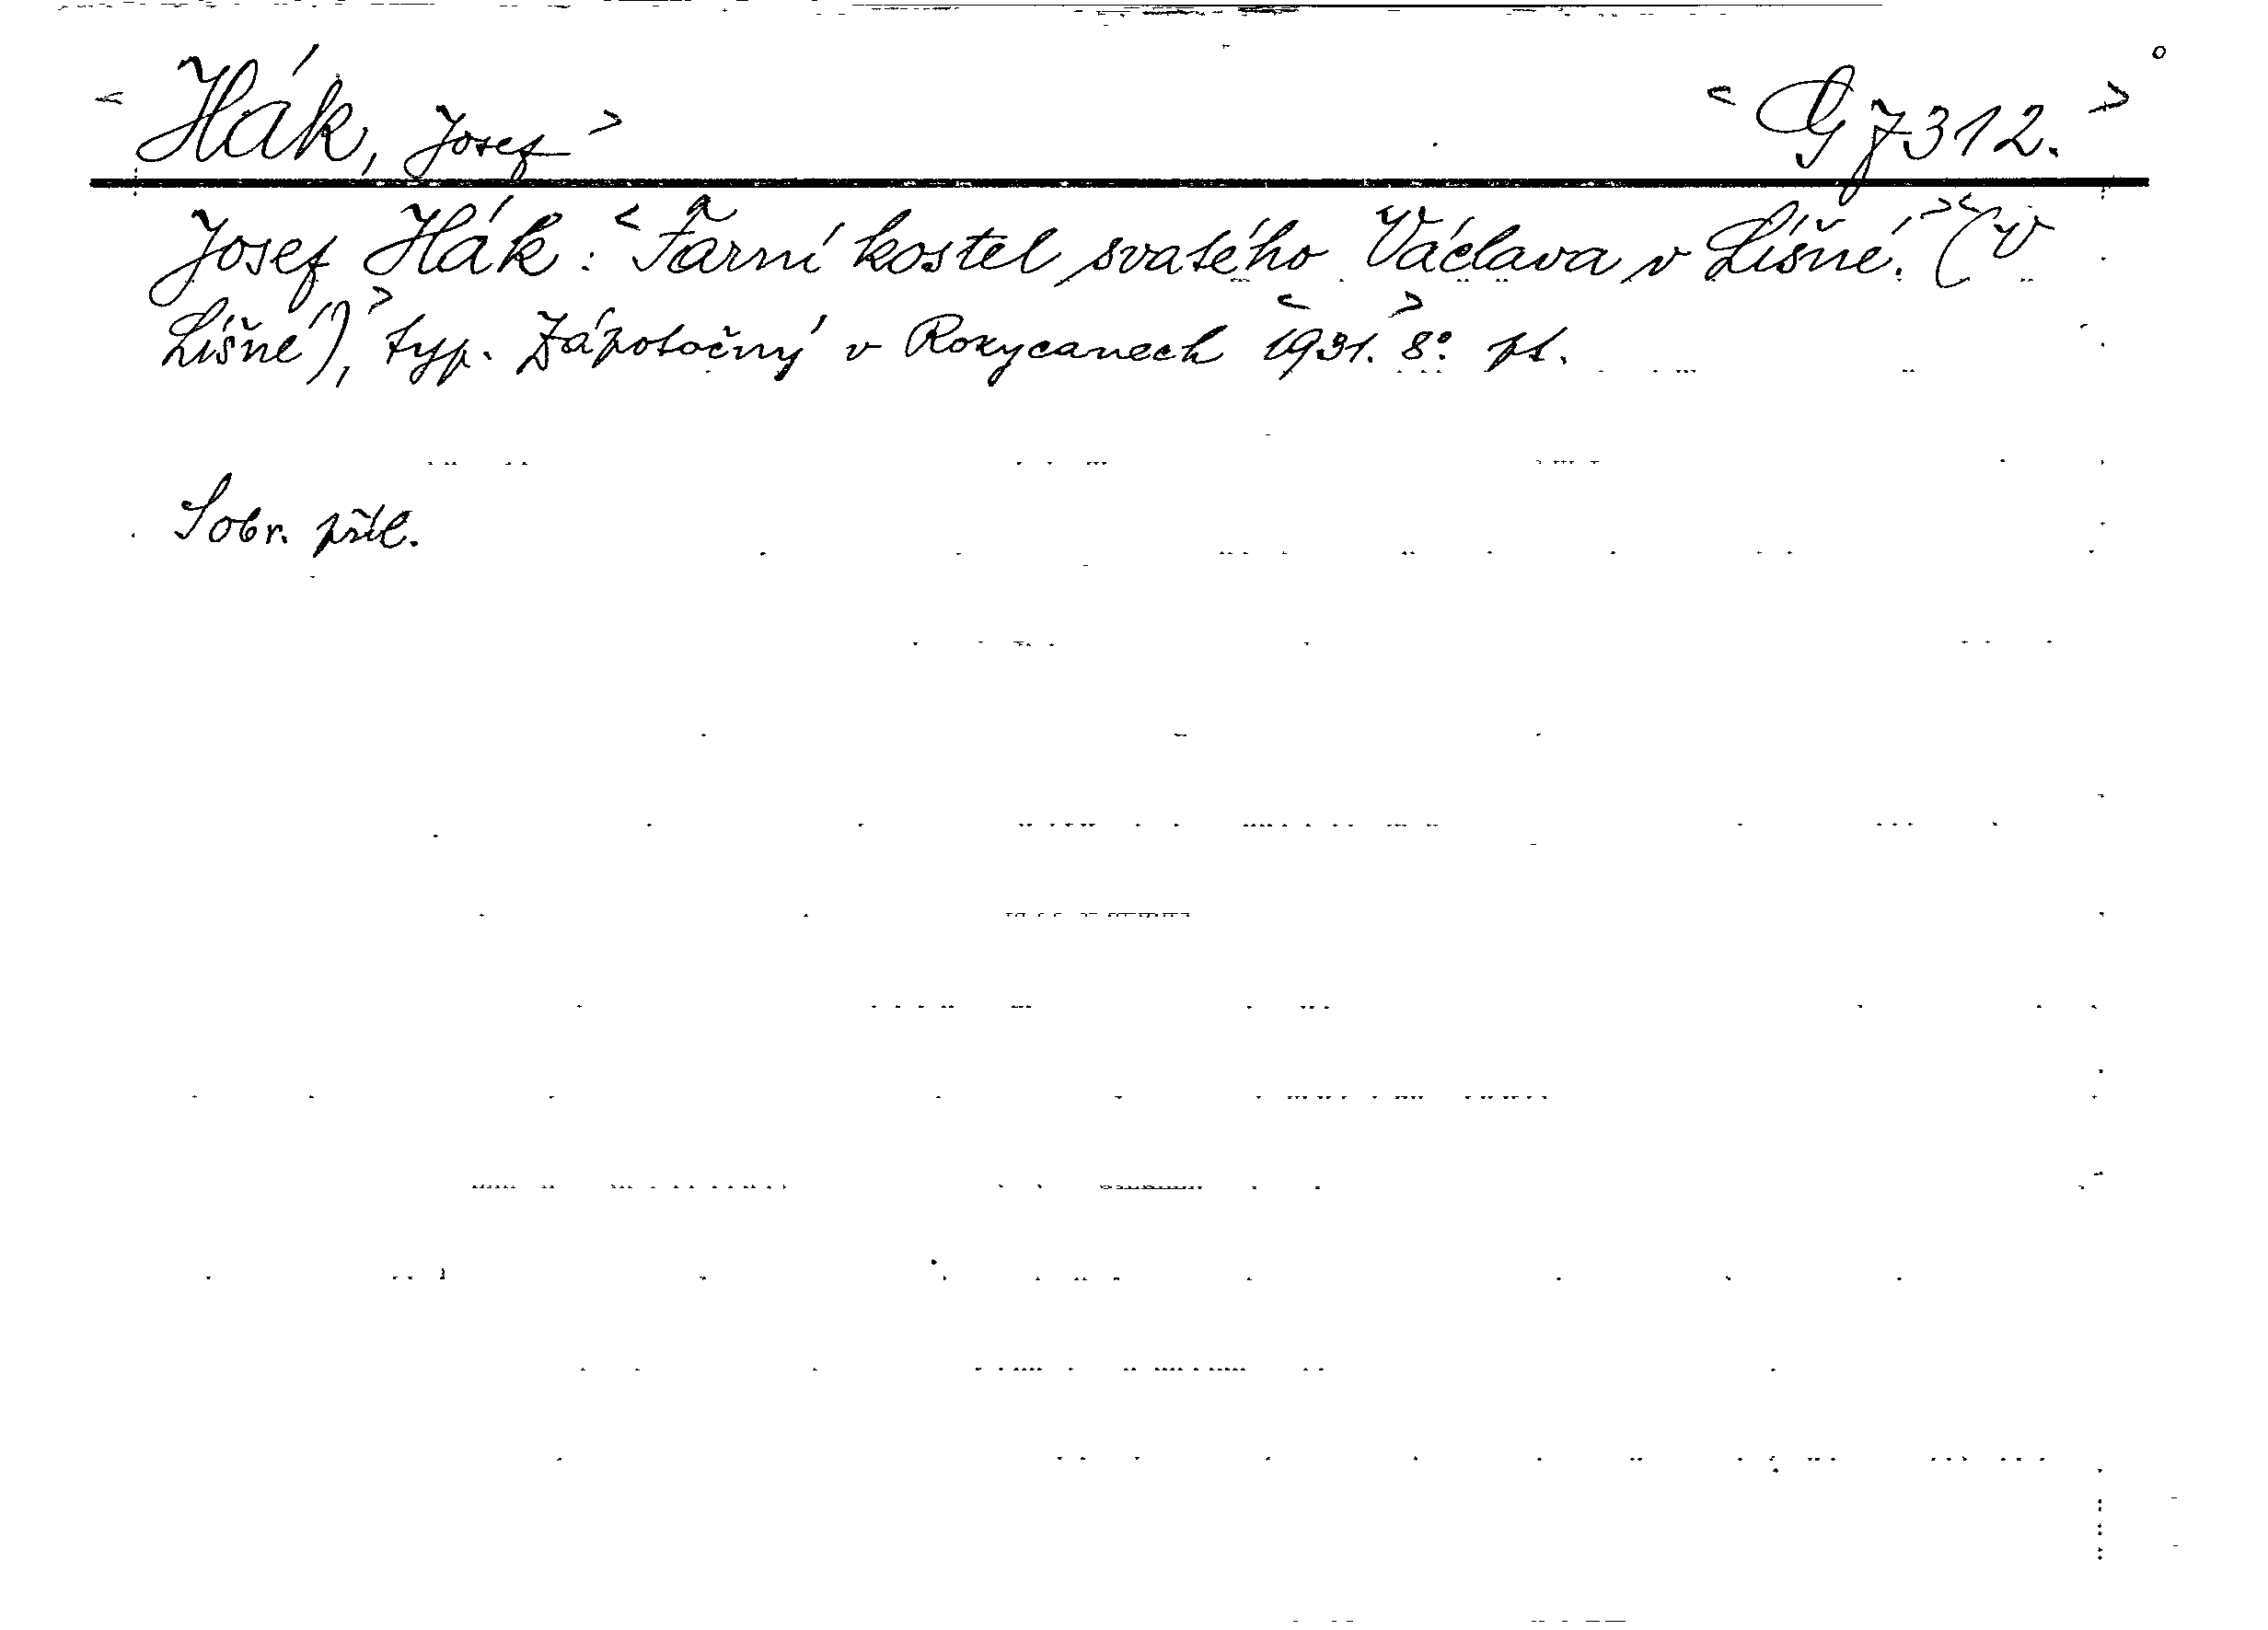 <Hák, Josef> <G 7312.>
Josef Hák: <Farní kostel svatého Václava v Líšné.> <(V
Líšné),> typ. Zápotočný v Rokycanech <1931.> 8° pt.
S obr. příl.